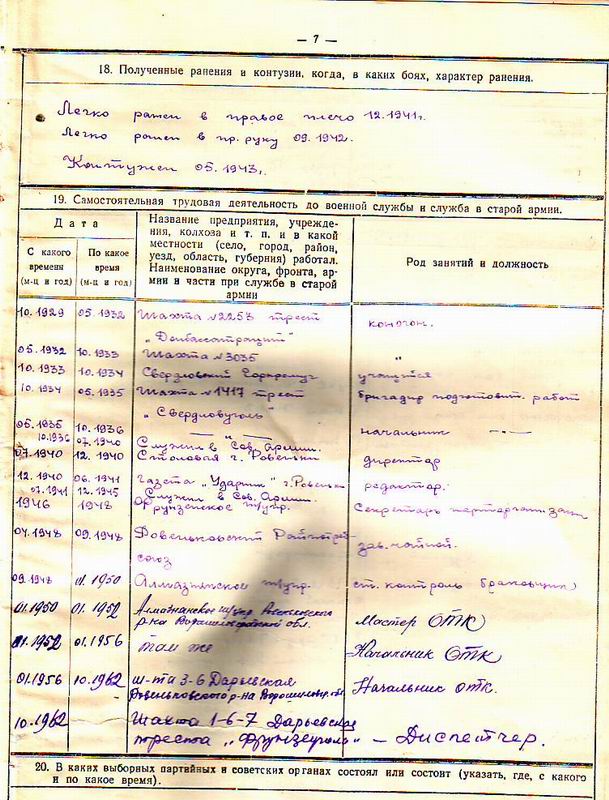 — 7 —
18. Полученные ранения и контузии, когда, в каких боях, характер ранения.
Легко ранен в правое плечо 12.1941г.
Легко ранен в пр. руку 09.1942г.
Контужен 05.1943г.
19. Самостоятельная трудовая деятельность до военной службы и служба в старой армии.
Дата
С какого времени (м-ц и год)
По какое время (м-ц и год)
Название предприятия, учрежде-
ния, колхоза и т. п. и в какой
местности (село, город, район,
уезд, область, губерния) работал.
Наименование округа, фронта, ар-
мии и части при службе в старой
армии
Род занятий и должность
10.1929 05.1932 Шахта №2253 трест коногон.
„Донбассантрацит"
05.1932 10.1933 Шахта №3035 "
10.1933 10.1934 Свердловский учащийся
10.1934 05.1935 Шахта №1417 трест бригадир подготовит. работ
„Свердловуголь"
05.1935 10.1936 —"— начальник —"—
10.1936 07.1940 Служил в Сов. Армии.
07.1940 12.1940 Столовая г. Ровеньки директор
12.1940 06.1941 газета „Ударник" г. Ровеньки редактор.
07.1941 12.1945 Служил в Сов. Армии.
1946 1948 Фрунзенское ш/упр. Секретарь
04.1948 09.1948 Ровеньковский зав. чайной.
союз
09.1948 01.1950 Алмазнянское ш/упр. ст. контроль браковщик
01.1950 01.1952 ш/упр Ровеньковского Мастер ОТК
р-на Ворошиловградской обл.
01.1952 01.1956 там же Начальник ОТК
01.1956 10.1962 ш-та 3-6 Дарьевская Начальник отк.
Ровеньковского р-на Ворошиловгр. обл
10.1962 Шахта 1-6-7 Дарьевская
треста „Фрунзеуголь" — Диспетчер.
20. В каких выборных партийных и советских органах состоял или состоит (указать, где, с какого
и по какое время).